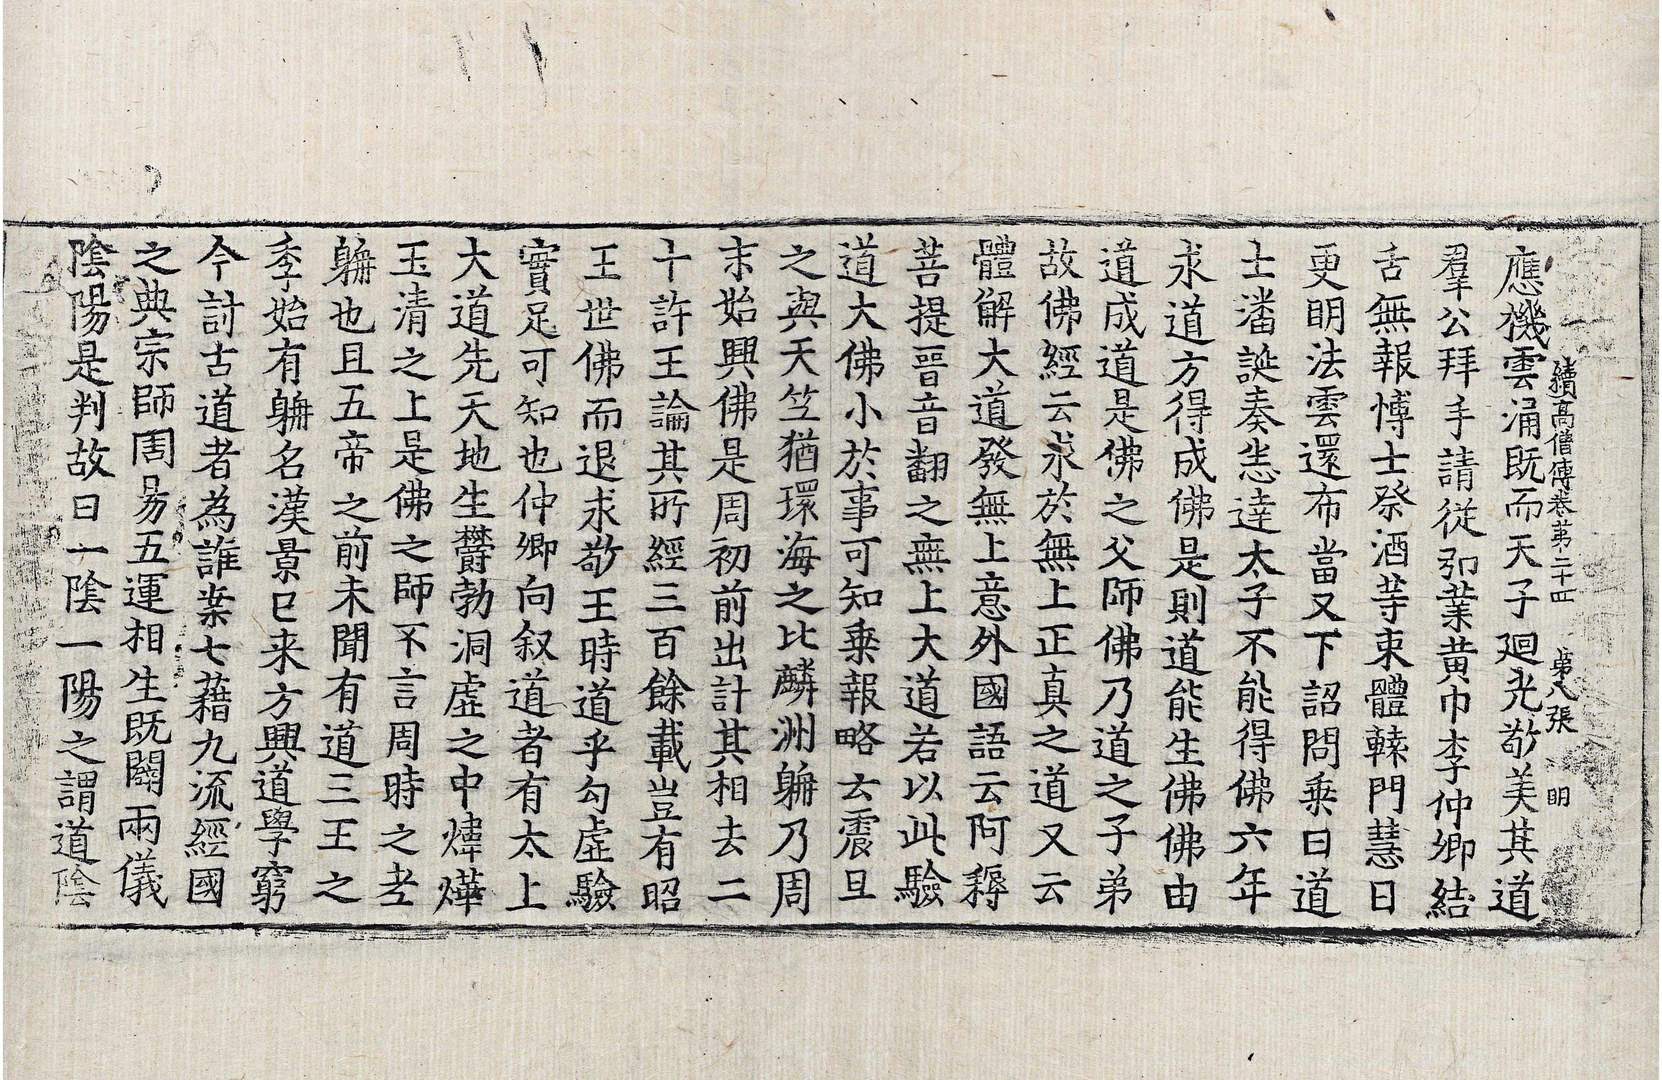 續高僧傳卷第二十四　第八張　明
應機雲涌既而天子廻光敬美其道
羣公拜手請從弘業黃巾李仲卿結
舌無報博士祭酒等束體轅門慧日
更明法雲還布當又下詔問乗曰道
士潘誕奏悉達太子不能得佛六年
求道方得成佛是則道能生佛佛由
道成道是佛之父師佛乃道之子弟
故佛經云求於無上正真之道又云
體解大道發無上意外國語云阿耨
菩提晉音翻之無上大道若以此驗
道大佛小於事可知乗報略云震旦
之與天竺猶環海之比麟洲耼乃周
末始興佛是周初前出計其相去二
十許王論其所經三百餘載豈有昭
王世佛而退求敬王時道乎勾虛驗
實足可知也仲卿向叙道者有太上
大道先天地生欝勃洞虛之中煒燁
玉清之上是佛之師不言周時之老
耼也且五帝之前未聞有道三王之
季始有耼名漢景已来方興道學窮
今討古道者為誰案七藉九流經國
之典宗師周易五運相生既闢兩儀
陰陽是判故曰一陰一陽之謂道陰